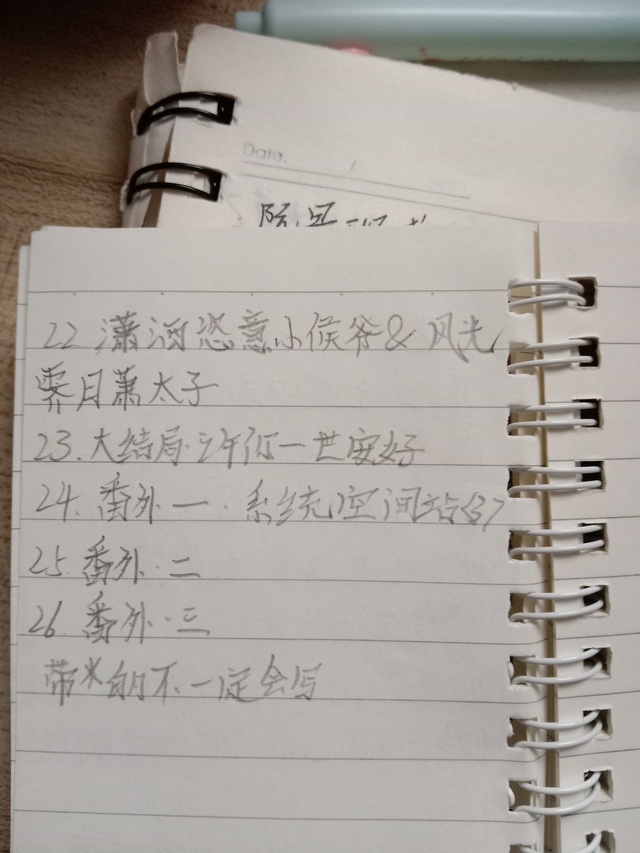 Date.
22 潇洒恣意小候爷&风光
霁月萧太子
23.大结局·许你一世安好
24.番外一·系统空间站
25.番外·二
26.番外·三
带*的不一定会写